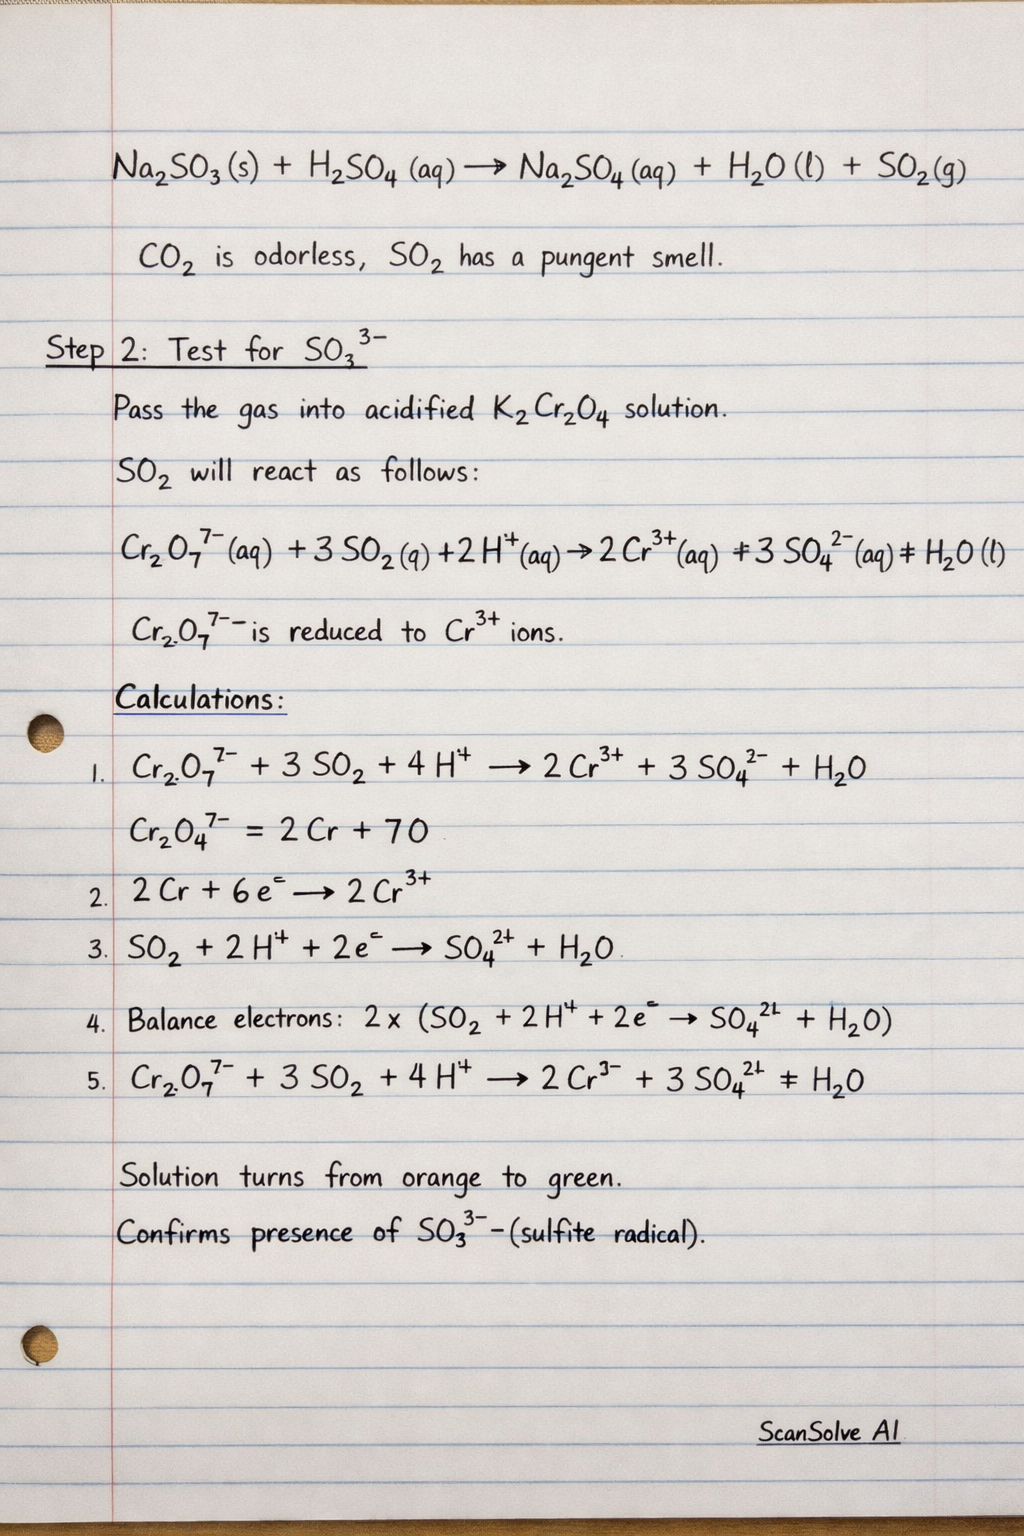 Na₂SO₃(s) + H₂SO₄ (aq) → Na₂SO₄(aq) + H₂O(l) + SO₂(g)
CO₂ is odorless, SO₂ has a pungent smell.
Step 2: Test for SO₃³⁻
Pass the gas into acidified K₂Cr₂O₄ solution.
SO₂ will react as follows:
Cr₂O₇⁷⁻(aq) + 3 SO₂(g) + 2 H⁺(aq) → 2 Cr³⁺(aq) + 3 SO₄²⁻(aq) + H₂O(l)
Cr₂O₇⁷⁻⁻ is reduced to Cr³⁺ ions.
Calculations:
1. Cr₂O₇⁷⁻ + 3 SO₂ + 4 H⁺ → 2 Cr³⁺ + 3 SO₄²⁻ + H₂O
Cr₂O₄⁷⁻ = 2 Cr + 7O
2. 2 Cr + 6 e⁼ → 2 Cr³⁺
3. SO₂ + 2 H⁺ + 2e⁼ → SO₄²⁺ + H₂O.
4. Balance electrons: 2 x (SO₂ + 2 H⁺ + 2e⁼ → SO₄²⁺ + H₂O)
5. Cr₂O₇⁷⁻ + 3 SO₂ + 4 H⁺ → 2 Cr³⁻ + 3 SO₄²⁺ ‡ H₂O
Solution turns from orange to green.
Confirms presence of SO₃³⁻ - (sulfite radical).
ScanSolve AI